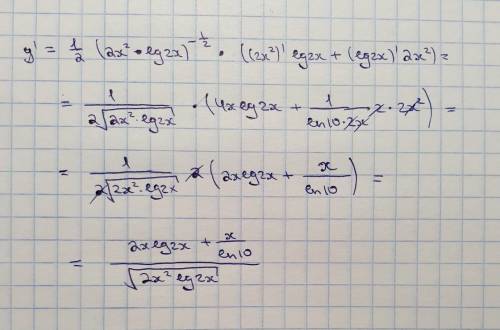 y' = 1/2 (2x² • lg2x)^(-1/2) • ((2x²)' lg2x + (lg2x)' 2x²) =
= 1/(2√(2x² • lg2x)) • (4xlg2x + 1/(ln10 • 2x) 2 • 2x²) =
= 1/(2√(2x² • lg2x)) 2 (2xlg2x + x/ln10) =
= (2xlg2x + x/ln10)/√(2x² lg2x)